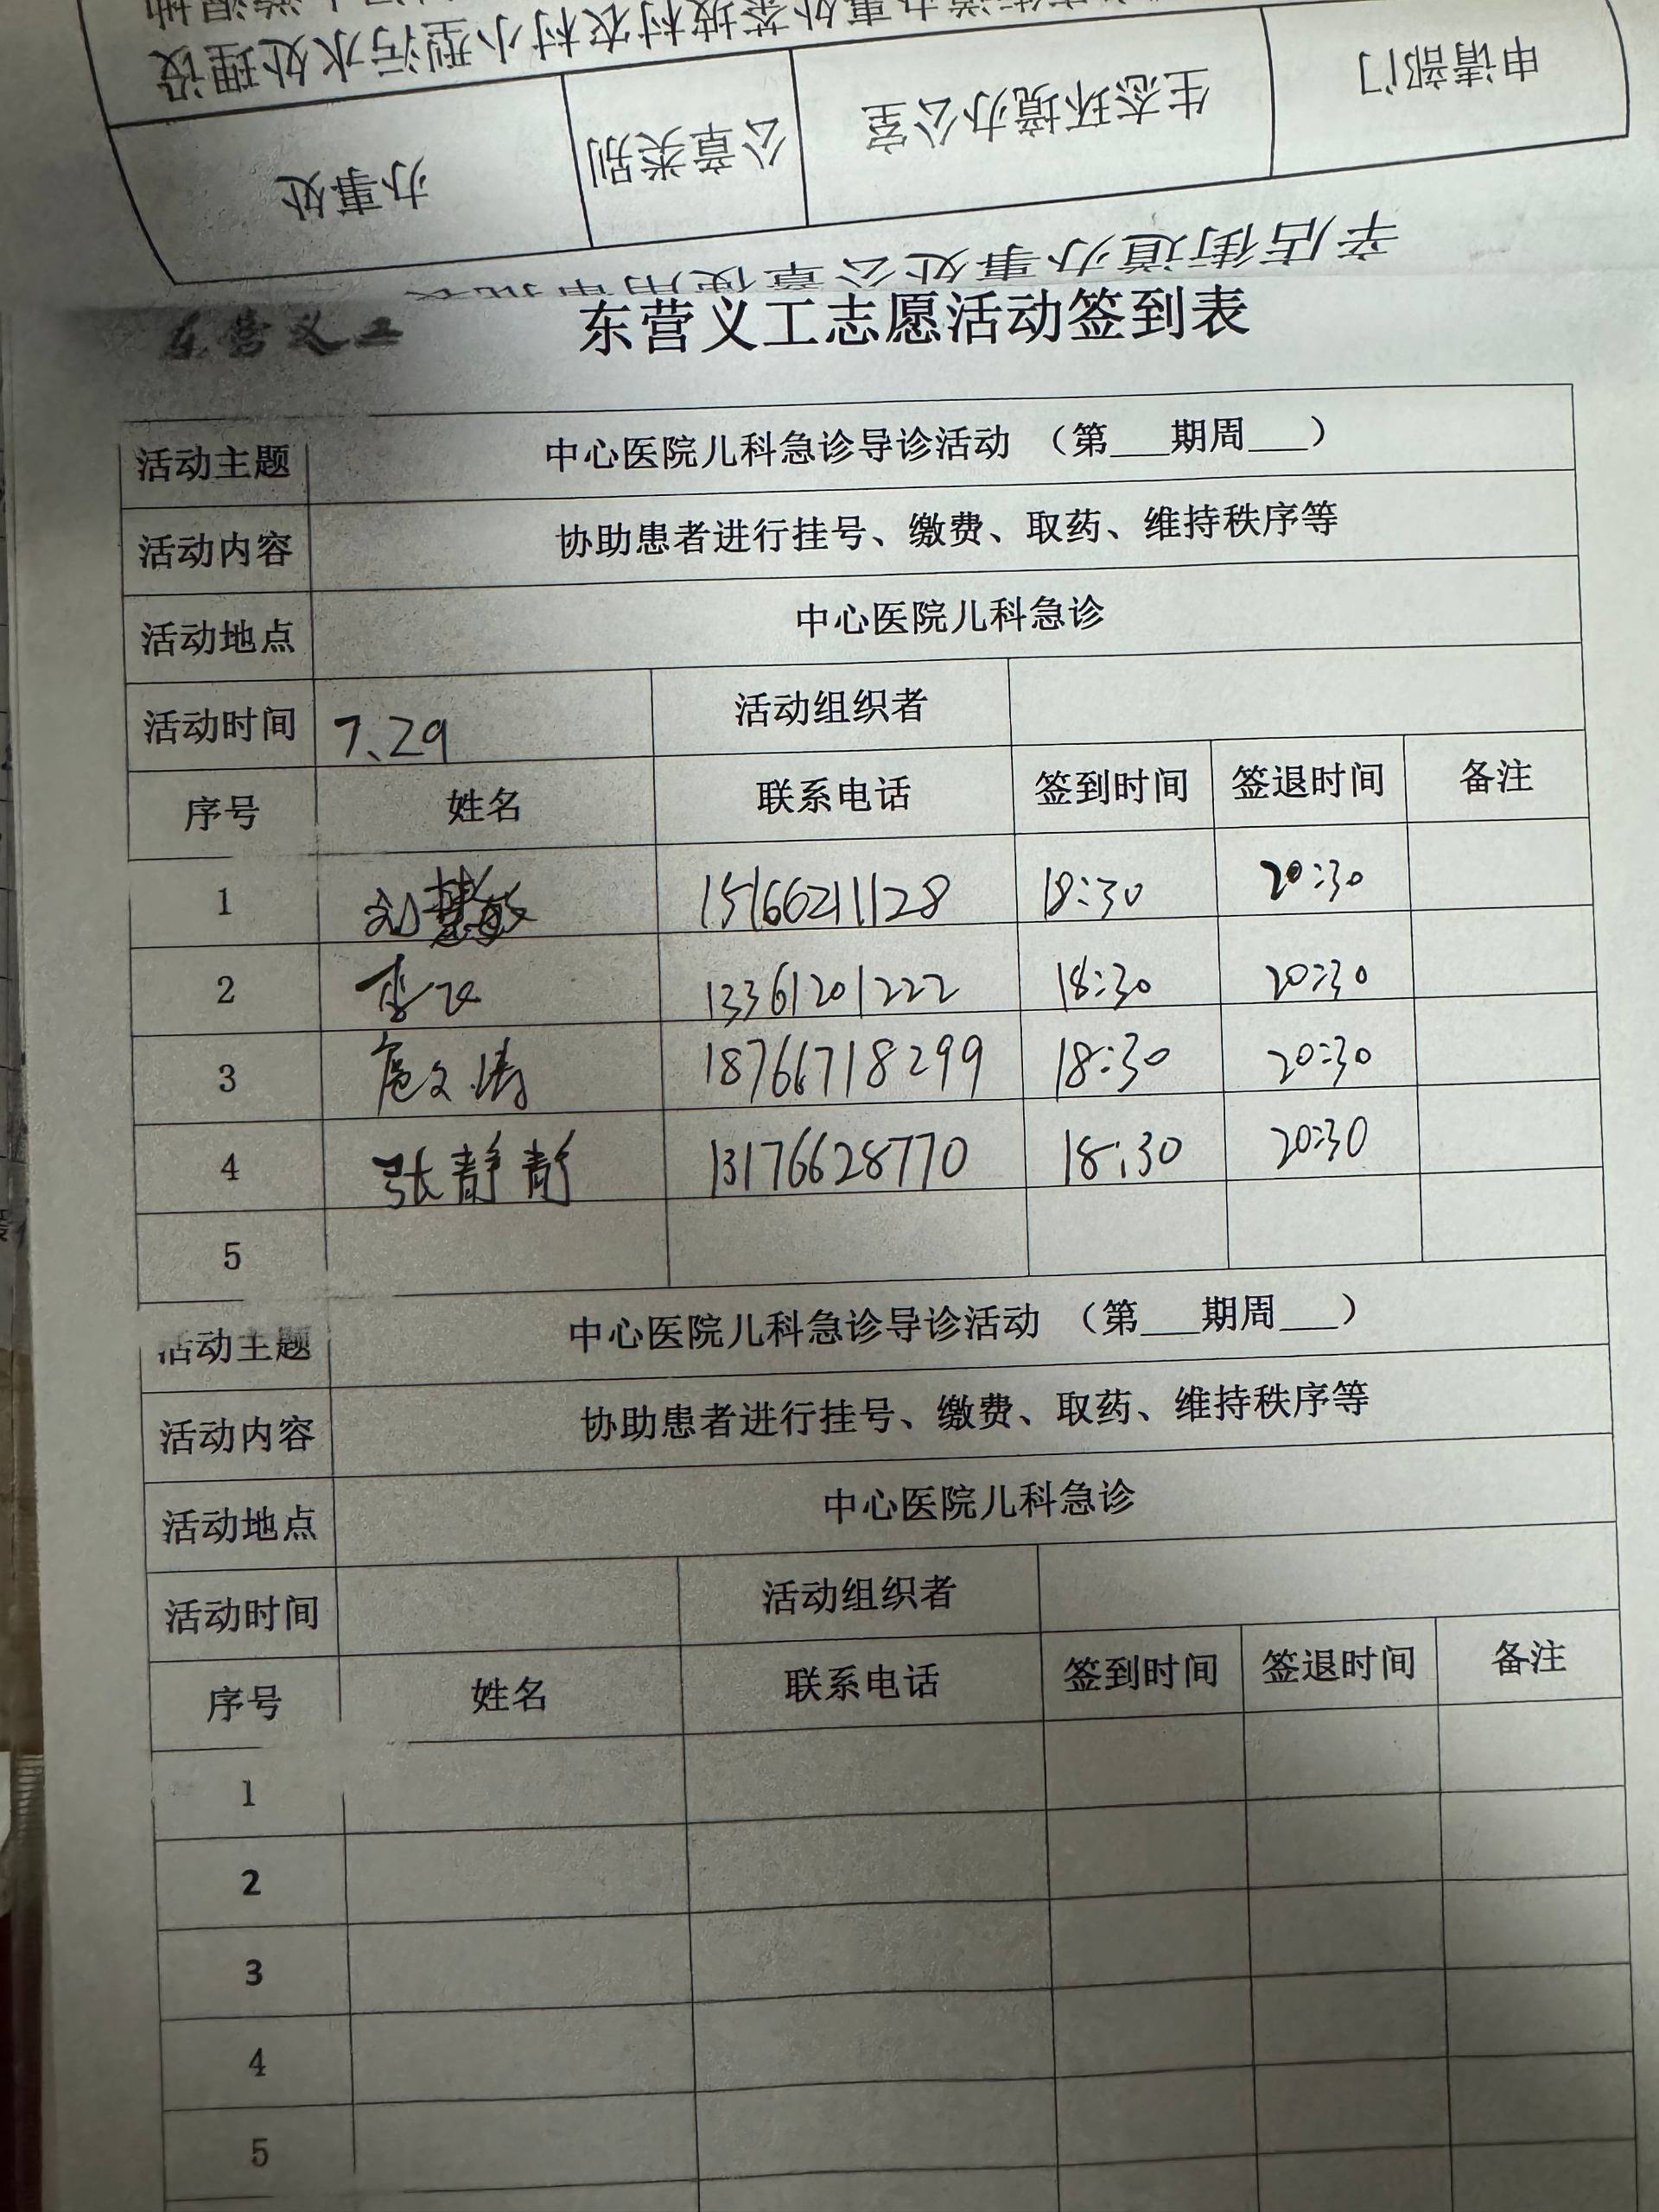 申请部门 生态环境办公室 公章类别 办事处
东营义工 东营义工志愿活动签到表
活动主题 中心医院儿科急诊导诊活动 （第___期周___）
活动内容 协助患者进行挂号、缴费、取药、维持秩序等
活动地点 中心医院儿科急诊
活动时间 7、29 活动组织者
序号 姓名 联系电话 签到时间 签退时间 备注
1 刘 15166211128 18:30 20:30
2 李飞 13361201222 18:30 20:30
3 扈文涛 18766718299 18:30 20:30
4 张静静 13176628770 18:30 20:30
5
活动主题 中心医院儿科急诊导诊活动 （第___期周___）
活动内容 协助患者进行挂号、缴费、取药、维持秩序等
活动地点 中心医院儿科急诊
活动时间 活动组织者
序号 姓名 联系电话 签到时间 签退时间 备注
1
2
3
4
5